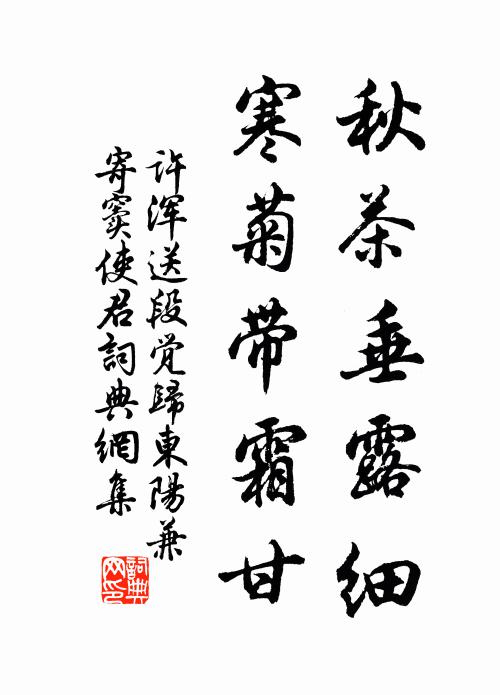 秋茶垂露细
寒菊带霜甘
许浑送段觉歸東陽兼
寄窦使君詞典網集
詞典
网印